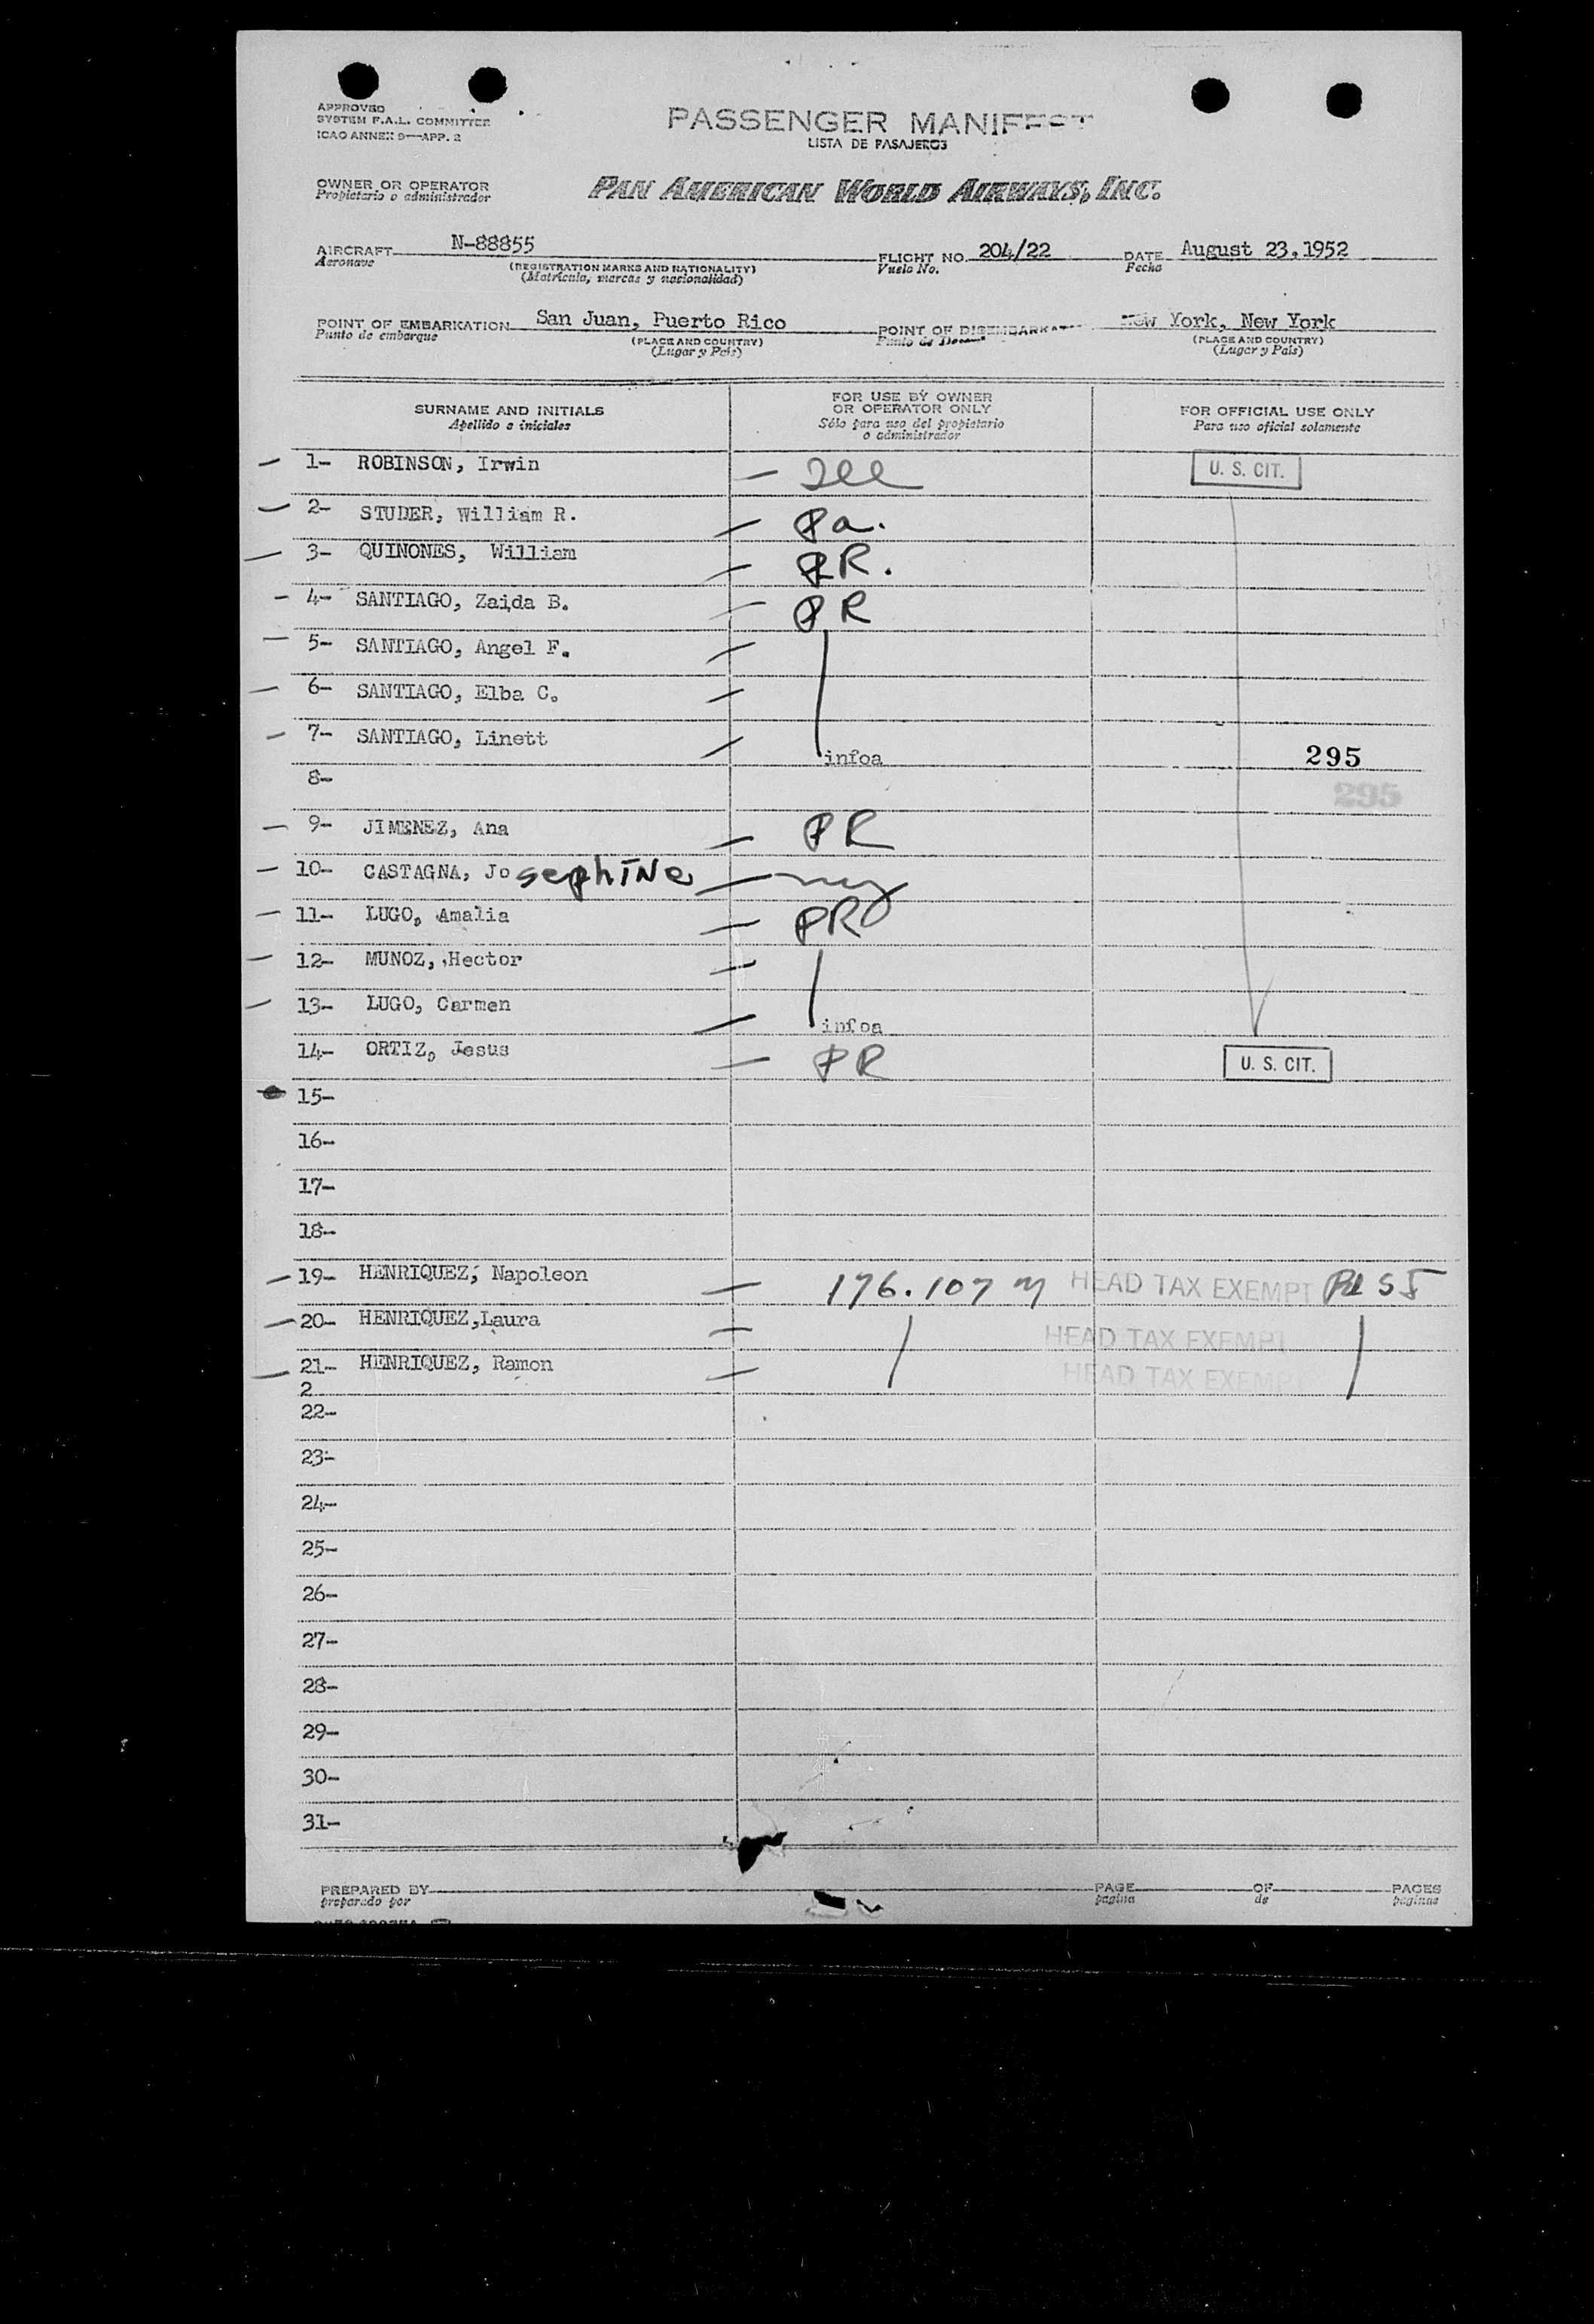 APPROVED
SYSTEM F.A.L. COMMITTEE
ICAO ANNEX 9—APP. 2
PASSENGER MANIFEST
LISTA DE PASAJEROS
OWNER OR OPERATOR
Propietario o administrador
PAN AMERICAN WORLD AIRWAYS, INC.
AIRCRAFT N-88855 FLIGHT NO. 204/22 DATE August 23, 1952
Aeronave (REGISTRATION MARKS AND NATIONALITY) Vuelo No. Fecha
(Matrícula, marcas y nacionalidad)
POINT OF EMBARKATION San Juan, Puerto Rico POINT OF DISEMBARKAT New York, New York
Punto de embarque (PLACE AND COUNTRY) Punto de (PLACE AND COUNTRY)
(Lugar y País) (Lugar y País)
SURNAME AND INITIALS
Apellido e iniciales
FOR USE BY OWNER
OR OPERATOR ONLY
Sólo para uso del propietario
o administrador
FOR OFFICIAL USE ONLY
Para uso oficial solamente
1- ROBINSON, Irwin U. S. CIT.
2- STUDER, William R. Pa.
3- QUINONES, William PR.
4- SANTIAGO, Zaida B. PR
5- SANTIAGO, Angel F.
6- SANTIAGO, Elba C.
7- SANTIAGO, Linett infoa 295
8- 295
9- JIMENEZ, Ana PR
10- CASTAGNA, Josephine ny
11- LUGO, Amalia PR
12- MUNOZ, Hector
13- LUGO, Carmen infoa
14- ORTIZ, Jesus PR U. S. CIT.
15-
16-
17-
18-
19- HENRIQUEZ, Napoleon 176.107 M HEAD TAX EXEMPT
20- HENRIQUEZ, Laura HEAD TAX EXEMPT
21- HENRIQUEZ, Ramon HEAD TAX EXEMP
2
22-
23-
24-
25-
26-
27-
28-
29-
30-
31-
PREPARED BY PAGE OF PAGES
preparado por pagina de paginas